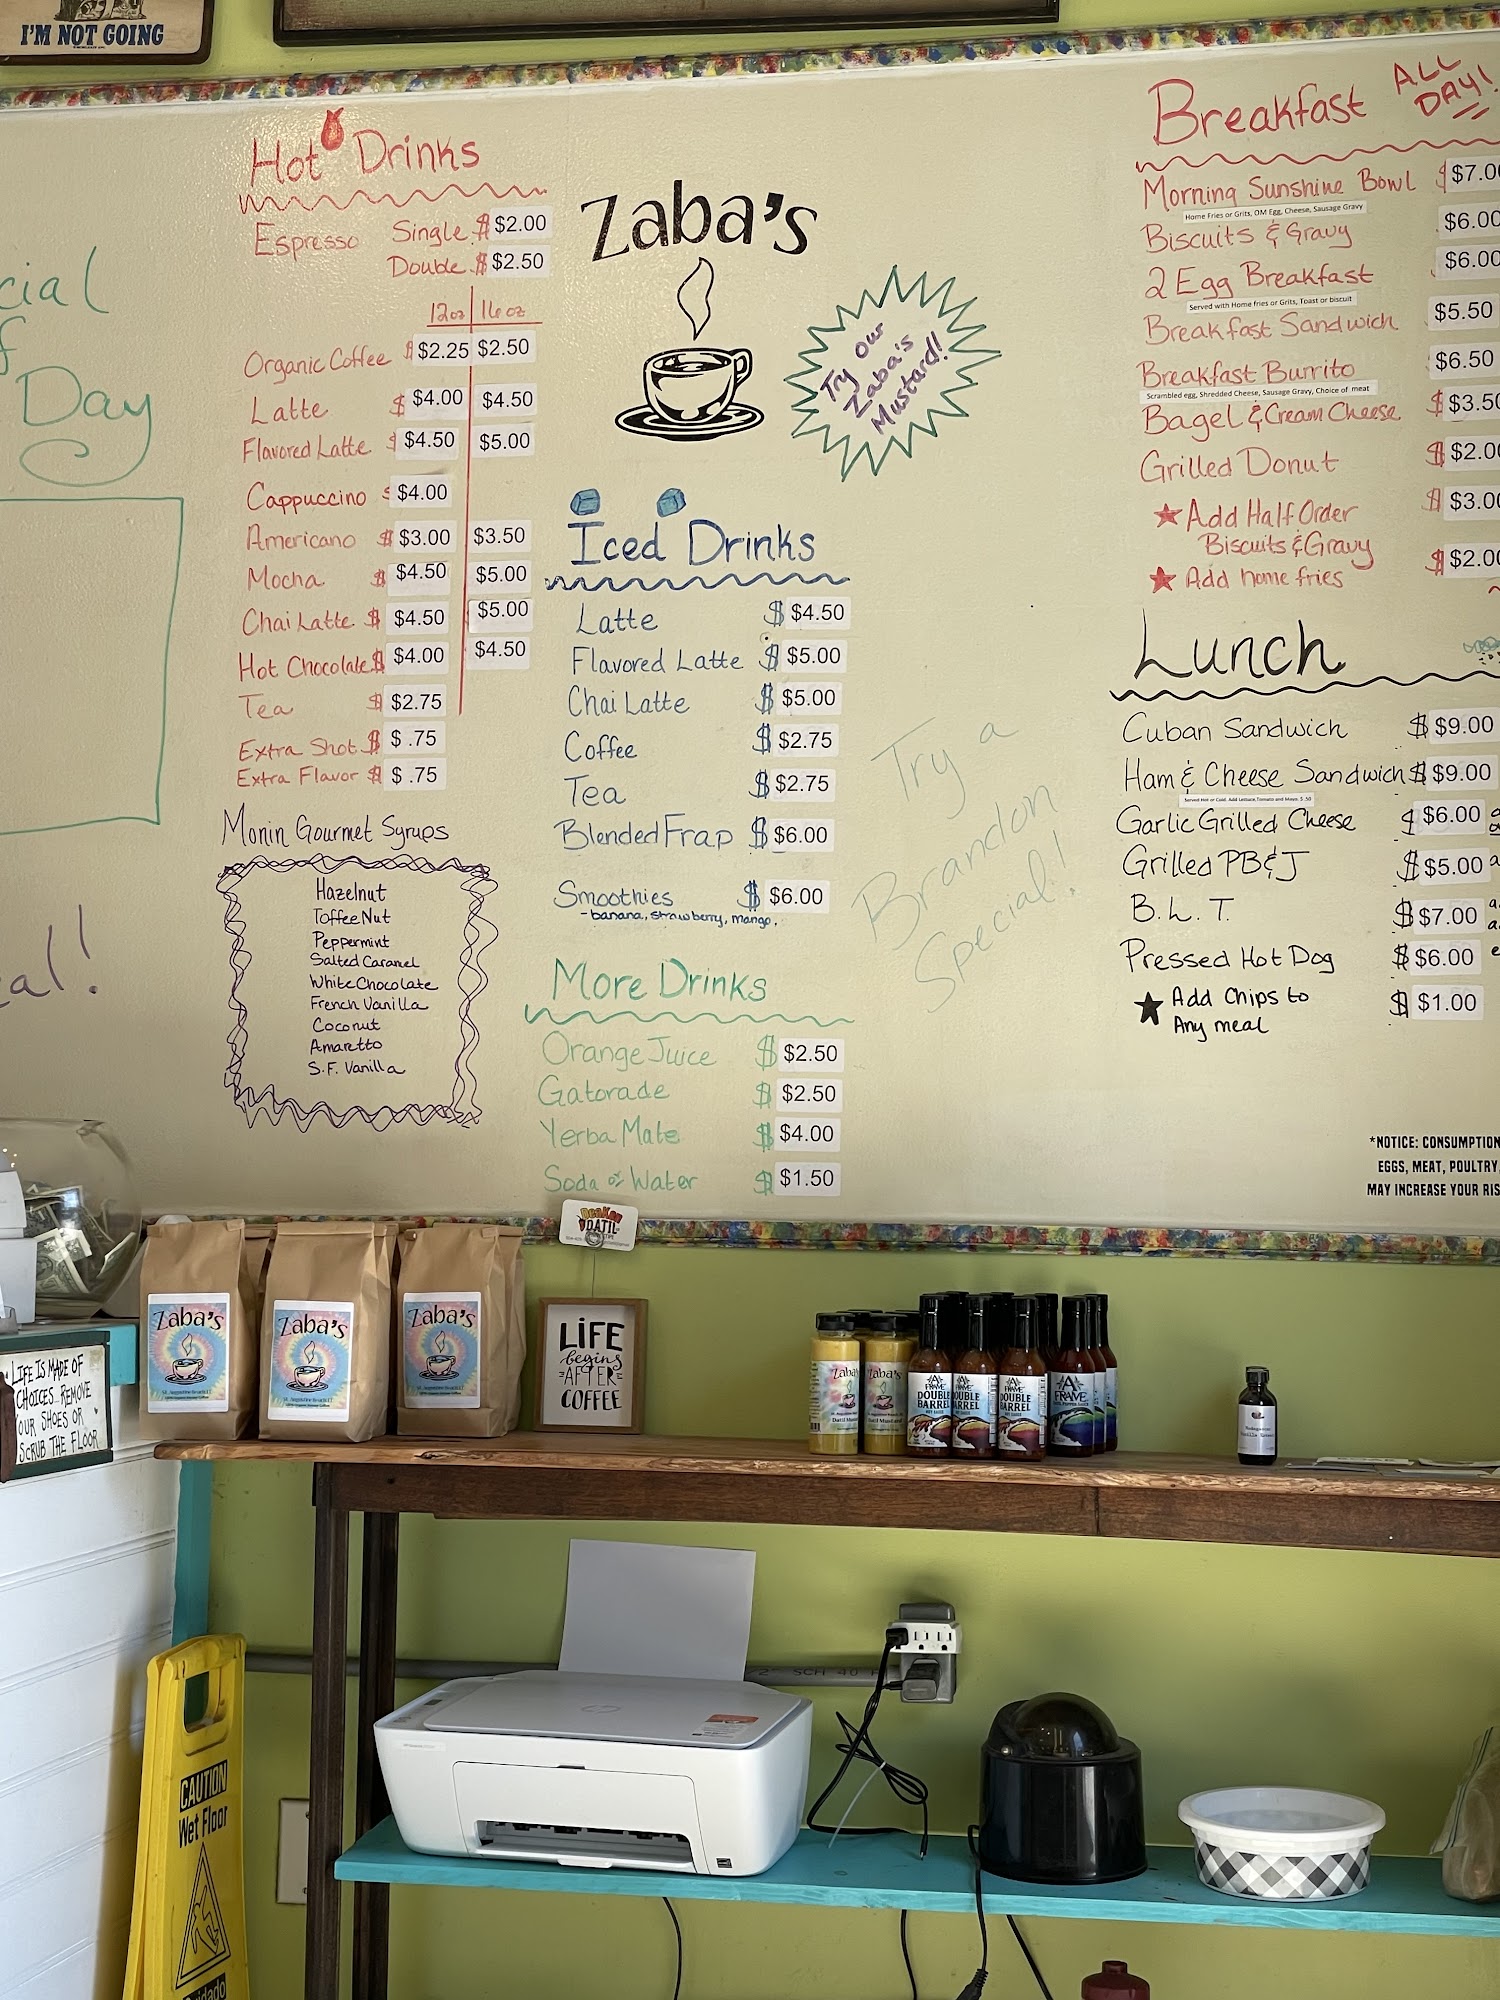 I'M NOT GOING
cial
f
Day
eal!
Hot Drinks
Espresso Single $ $2.00
Double $ $2.50
12oz 16oz
Organic Coffee $ $2.25 $2.50
Latte $ $4.00 $4.50
Flavored Latte $ $4.50 $5.00
Cappuccino $ $4.00
Americano $ $3.00 $3.50
Mocha $ $4.50 $5.00
Chai Latte $ $4.50 $5.00
Hot Chocolate $ $4.00 $4.50
Tea $ $2.75
Extra Shot $ $ .75
Extra Flavor $ $ .75
Monin Gourmet Syrups
Hazelnut
Toffee Nut
Peppermint
Salted Caramel
White Chocolate
French Vanilla
Coconut
Amaretto
S.F. Vanilla
Zaba's
Try our
Zaba's
Mustard!!
Iced Drinks
Latte $ $4.50
Flavored Latte $ $5.00
Chai Latte $ $5.00
Coffee $ $2.75
Tea $ $2.75
Blended Frap $ $6.00
Smoothies $ $6.00
- banana, strawberry, mango,
More Drinks
Orange Juice $ $2.50
Gatorade $ $2.50
Yerba Mate $ $4.00
Soda or Water $ $1.50
Try a
Brandon
Special!
Breakfast ALL
DAY!
Morning Sunshine Bowl $ $7.00
Home Fries or Grits, OM Egg, Cheese, Sausage Gravy
Biscuits & Gravy $6.00
2 Egg Breakfast $6.00
Served with Home fries or Grits, Toast or biscuit
Breakfast Sandwich $5.50
Breakfast Burrito $6.50
Scrambled egg, Shredded Cheese, Sausage Gravy, Choice of meat
Bagel & Cream Cheese $ $3.50
Grilled Donut $ $2.00
Add Half Order $ $3.00
Biscuits & Gravy
Add home fries $ $2.00
Lunch
Cuban Sandwich $ $9.00
Ham & Cheese Sandwich $ $9.00
Served Hot or Cold. Add Lettuce, Tomato and Mayo. $ .50
Garlic Grilled Cheese $ $6.00
Grilled PB&J $ $5.00
B.L.T. $ $7.00
Pressed Hot Dog $ $6.00
Add Chips to $ $1.00
Any meal
*NOTICE: CONSUMPTION
EGGS, MEAT, POULTRY,
MAY INCREASE YOUR RIS
DATIL
Zaba's
Zaba's
Zaba's
LIFE
begins
AFTER
COFFEE
LIFE IS MADE OF
CHOICES. REMOVE
OUR SHOES OR
SCRUB THE FLOOR
Zaba's
Datil Mustard
Zaba's
Datil Mustard
A
FRAME
DOUBLE
BARREL
HOT SAUCE
A
FRAME
DOUBLE
BARREL
A
FRAME
DOUBLE
BARREL
A
FRAME
Madagascar
2" SCH 40 P
hp
CAUTION
Wet Floor
Cuidado